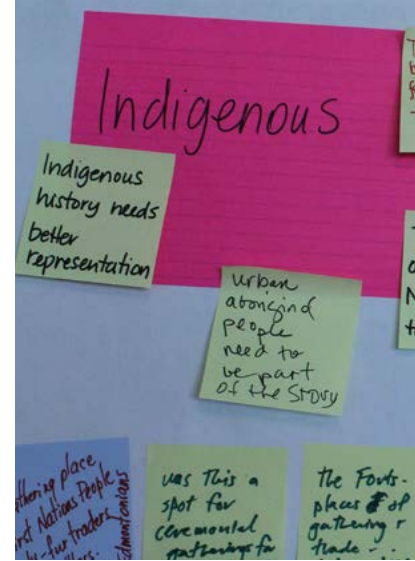 Indigenous
Indigenous
history needs
better
representation
urban
aboriginal
people
need to
be part
of the Story
place,
First Nations People
fur traders
Edmontonians
was This a
spot for
ceremonial
gatherings for
the Forts -
places of
gathering &
trade -